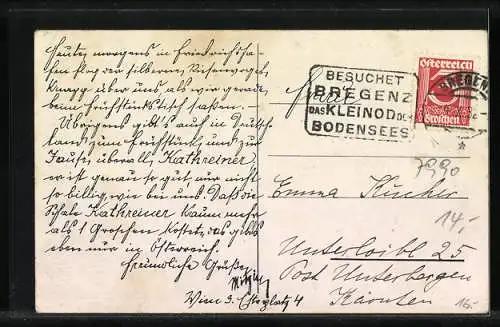 Heute morgens in Friedrichsha-
fen flog der silberne Riesenvogel
knapp über uns als wir gerade
beim Frühstückstisch saßen.
Übrigens gibt's auch in Deutsch-
land zum Frühstück und zur
Jause überall Kathreiner,
er ist genau so gut nur nicht
so billig wie bei uns. Daß die
Schale Kathreiner kaum mehr
als 1 Groschen kostet, das gibts
eben nur in Österreich.
Freundliche Grüße
Mitzi
Wien 3.
BESUCHET
BREGENZ
DAS KLEINOD DES
BODENSEES
Österreich
Groschen
BREGENZ
7990
Emma Kucher
14,-
Unterloibl 25
Post Unterbergen
Kärnten
16.-